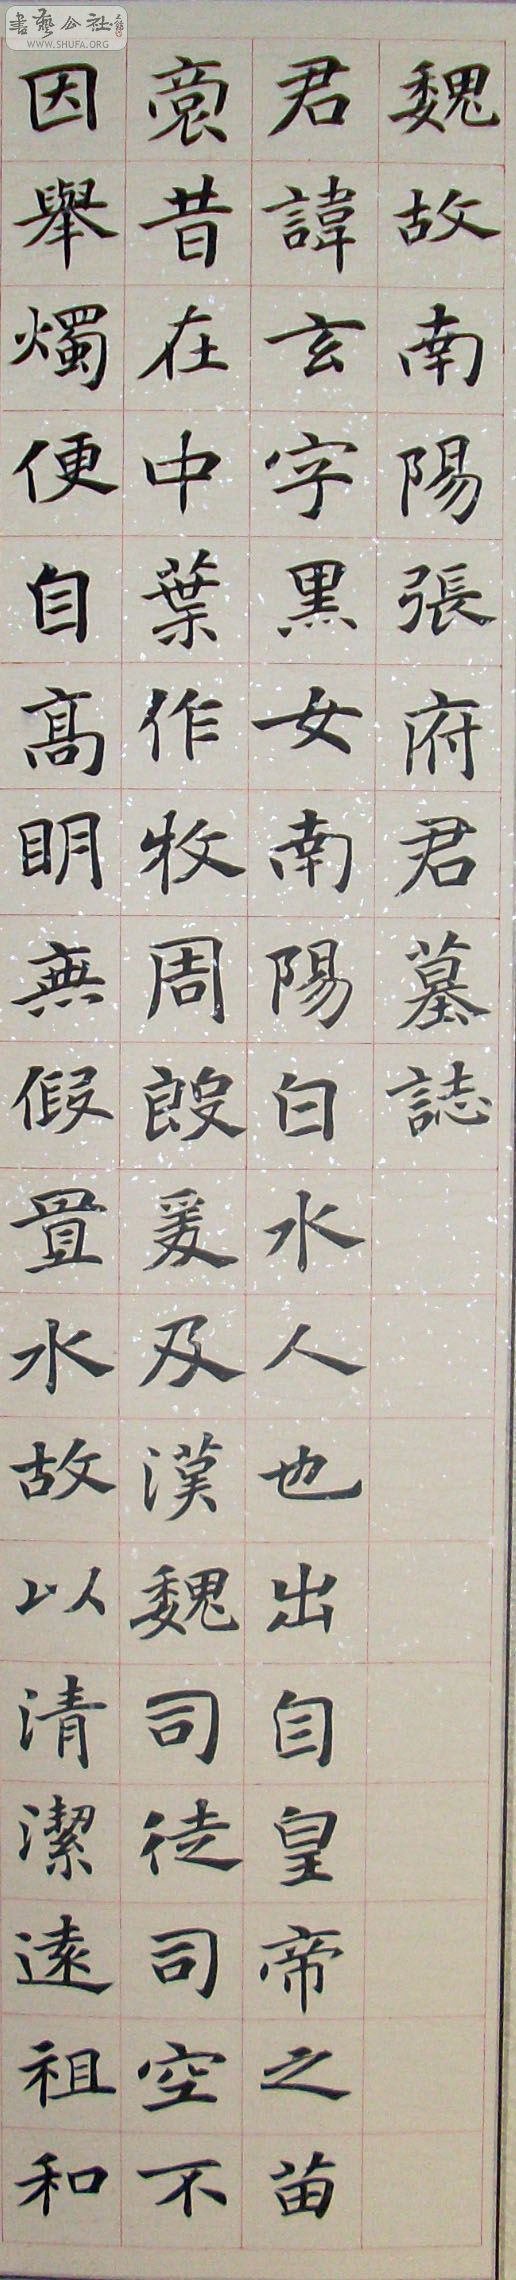 書藝公社
WWW.SHUFA.ORG
魏故南陽張府君墓誌
君諱玄字黑女南陽白水人也出自皇帝之苗
裔昔在中葉作牧周殷爰及漢魏司徒司空不
因舉燭便自高明無假置水故以清潔遠祖和